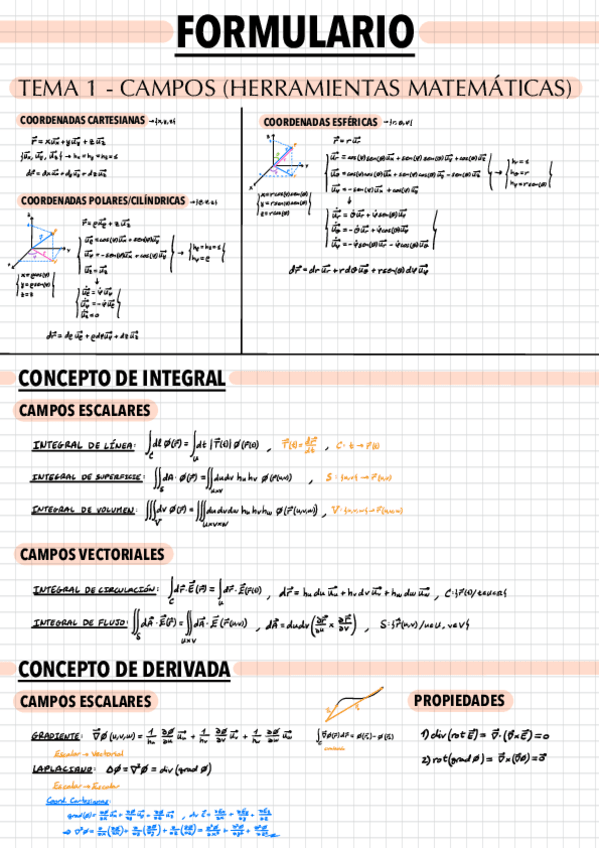 FORMULARIO
TEMA 1 - CAMPOS (HERRAMIENTAS MATEMÁTICAS)
COORDENADAS CARTESIANAS → {x, y, z}
r⃗ = x u⃗x + y u⃗y + z u⃗z
{u⃗x, u⃗y, u⃗z} → hx = hy = hz = 1
dr⃗ = dx u⃗x + dy u⃗y + dz u⃗z
COORDENADAS POLARES/CILÍNDRICAS
r⃗ = ρ u⃗ρ + z u⃗z
u⃗ρ = cos(φ) u⃗x + sen(φ) u⃗y
u⃗φ = -sen(φ) u⃗x + cos(φ) u⃗y
u⃗z = u⃗z
→ hρ = hz = 1
hφ = ρ
x = ρcos(φ)
y = ρsen(φ)
z = z
dr⃗ = dρ u⃗ρ + ρdφ u⃗φ + dz u⃗z
COORDENADAS ESFÉRICAS → {r, θ, φ}
r⃗ = r u⃗r
u⃗r = cos(φ)sen(θ) u⃗x + sen(φ)sen(θ) u⃗y + cos(θ) u⃗z
u⃗θ = cos(φ)cos(θ) u⃗x + sen(φ)cos(θ) u⃗y - sen(θ) u⃗z
u⃗φ = -sen(φ) u⃗x + cos(φ) u⃗y
→ hr = 1
hθ = r
hφ = r sen(θ)
x = r cos(φ)sen(θ)
y = r sen(φ)sen(θ)
z = r cos(θ)
dr⃗ = dr u⃗r + r dθ u⃗θ + r sen(θ) dφ u⃗φ
CONCEPTO DE INTEGRAL
CAMPOS ESCALARES
INTEGRAL DE LÍNEA: ∫C dl ø(r⃗) = ∫u dt |T⃗(t)| ø(r⃗(t)) , T⃗(t) = dr⃗/dt , C: t → r⃗(t)
INTEGRAL DE SUPERFICIE: ∬S dA · ø(r⃗) = ∬uxv du dv hu hv ø(r⃗(u,v)) , S: {u,v} → r⃗(u,v)
INTEGRAL DE VOLUMEN: ∭V dv ø(r⃗) = ∭uxvxw du dv dw hu hv hw ø(r⃗(u,v,w)) , V: {u,v,w} → r⃗(u,v,w)
CAMPOS VECTORIALES
INTEGRAL DE CIRCULACIÓN: ∫C dr⃗ · E⃗(r⃗) = ∫u dr⃗ · E⃗(r⃗(t)) , dr⃗ = hu du u⃗u + hv dv u⃗v + hw dw u⃗w
INTEGRAL DE FLUJO: ∬S dA⃗ · E⃗(r⃗) = ∬uxv dA⃗ · E⃗(r⃗(u,v)) , dA⃗ = du dv (∂r⃗/∂u × ∂r⃗/∂v) , S: {r⃗(u,v) / u∈U, v∈V}
CONCEPTO DE DERIVADA
CAMPOS ESCALARES
GRADIENTE: ∇⃗ø(u,v,w) = 1/hu ∂ø/∂u u⃗u + 1/hv ∂ø/∂v u⃗v + 1/hw ∂ø/∂w u⃗w
Escalar → Vectorial
LAPLACIANO: Δø = ∇²ø = div(grad ø)
Escalar → Escalar
Coord. Cartesianas:
∫C ∇⃗ø(r⃗) dr⃗ = ø(r⃗2) - ø(r⃗1)
PROPIEDADES
1) div(rot E⃗) = ∇⃗ · (∇⃗ x E⃗) = 0
2) rot(grad ø) = ∇⃗ x (∇⃗ø) = 0⃗